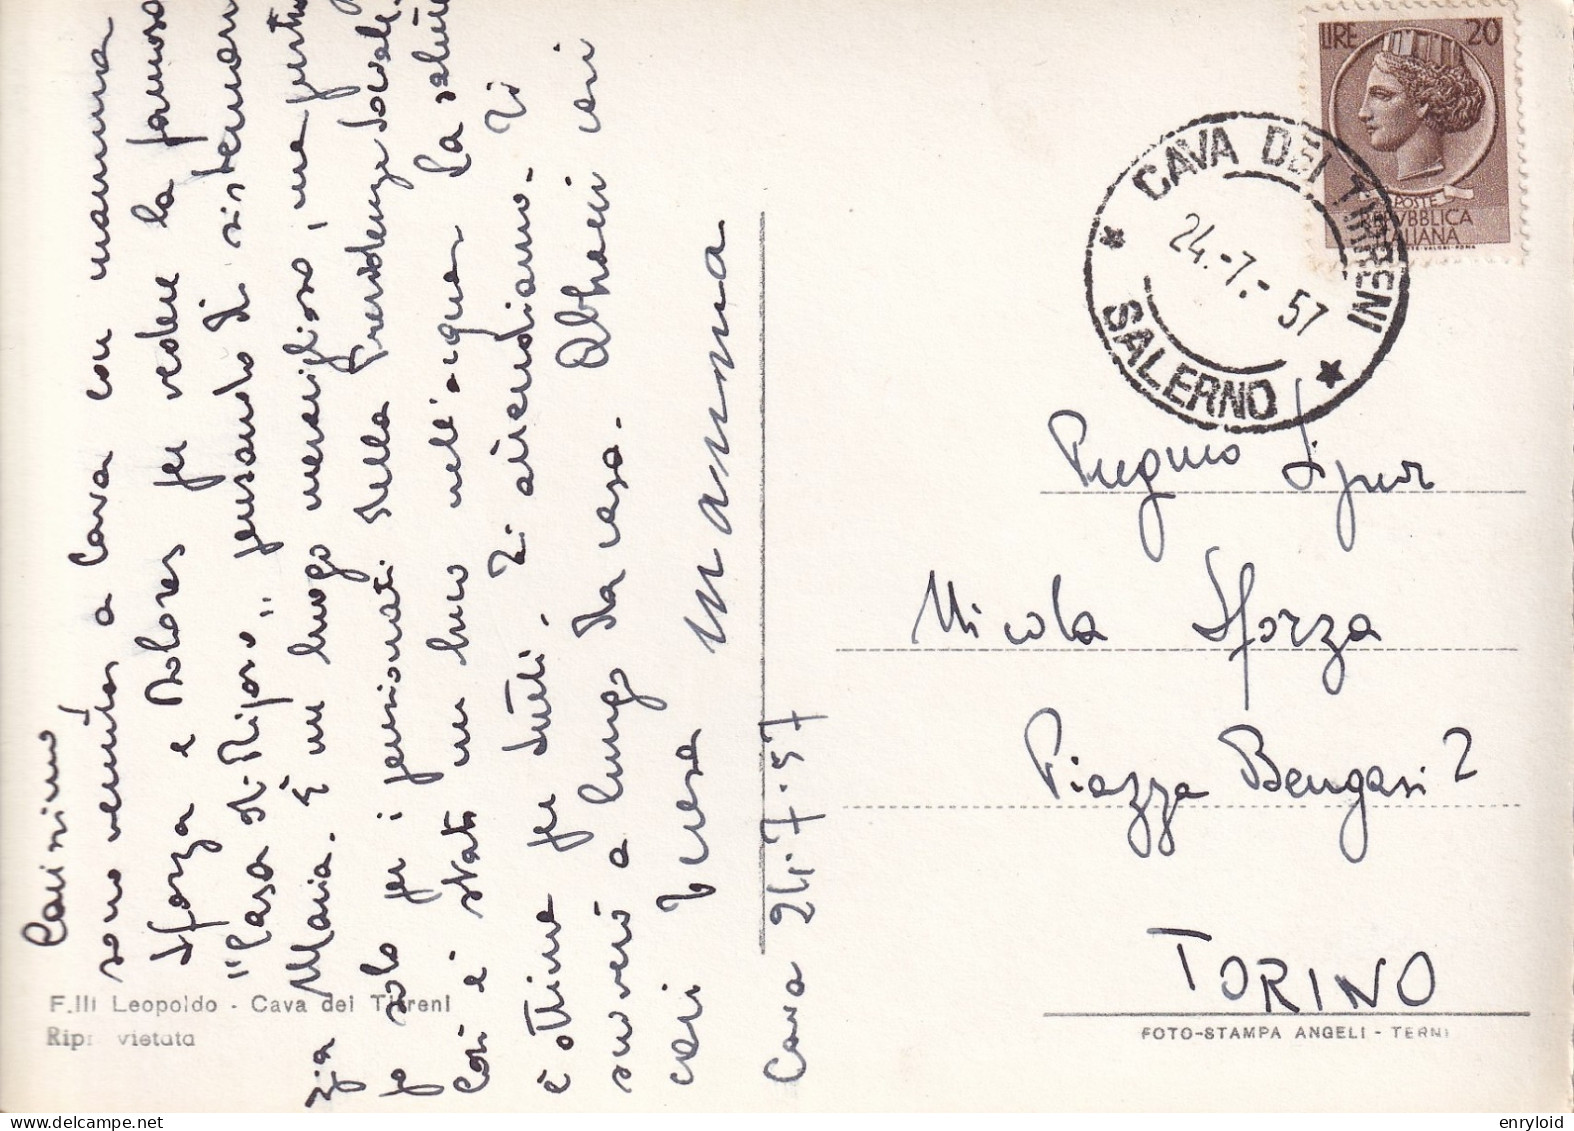 Carissimo
sono venuta a Cava con mamma
Sforza e Dolores per vedere la famosa
"Casa di Riposo" pensando di sistemarvi
zia Maria. È un luogo meraviglioso, ma
fo solo per i pensionati della Previdenza Sociale.
Così è stato un buco nell'acqua. La salute
è ottima per tutti. Vi attendiamo. Vi
scriverò a lungo da casa. Abbracci cari
cari Teresa
mamma
Cava 24.7.57
LIRE 20
POSTE
REPVBBLICA
ITALIANA
CAVA DEI TIRRENI
24.-7.-57
SALERNO
Pregmo Sigur
Nicola Sforza
Piazza Bengasi 2
TORINO
F.lli Leopoldo - Cava dei Tirreni
Ripr. vietata
FOTO-STAMPA ANGELI - TERNI
enryloid
delcampe.net